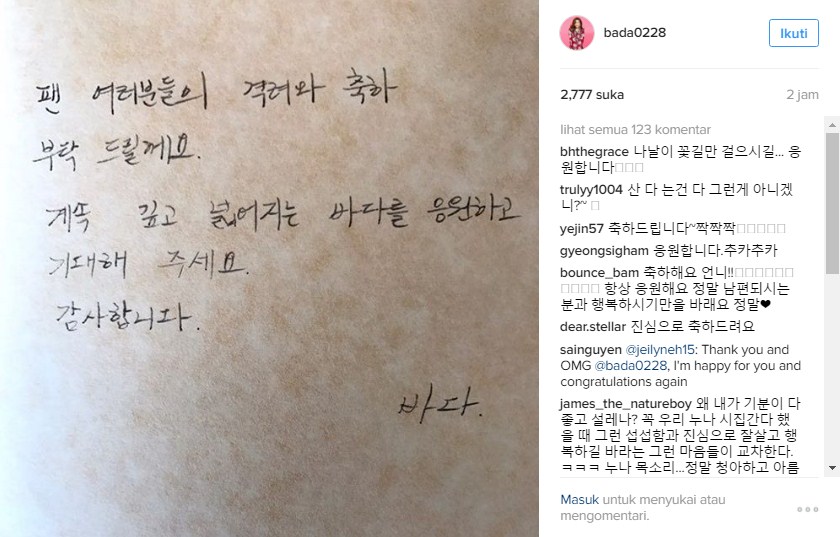 팬 여러분들의 격려와 축하
부탁 드릴께요.
계속 깊고 넓어지는 바다를 응원하고
기대해 주세요.
감사합니다.
바다.
bada0228
Ikuti
2,777 suka
2 jam
lihat semua 123 komentar
bhthegrace 나날이 꽃길만 걸으시길... 응
원합니다
trulyy1004 산 다 는건 다 그런게 아니겠
니?~
yejin57 축하드립니다~짝짝짝
gyeongsigham 응원합니다.추카추카
bounce_bam 축하해요 언니!!
항상 응원해요 정말 남편되시는
분과 행복하시기만을 바래요 정말❤
dear.stellar 진심으로 축하드려요
sainguyen @jeilyneh15: Thank you and
OMG @bada0228, I'm happy for you and
congratulations again
james_the_natureboy 왜 내가 기분이 다
좋고 설레나? 꼭 우리 누나 시집간다 했
을 때 그런 섭섭함과 진심으로 잘살고 행
복하길 바라는 그런 마음들이 교차한다.
ㅋㅋㅋ 누나 목소리...정말 청아하고 아름
Masuk untuk menyukai atau
mengomentari.